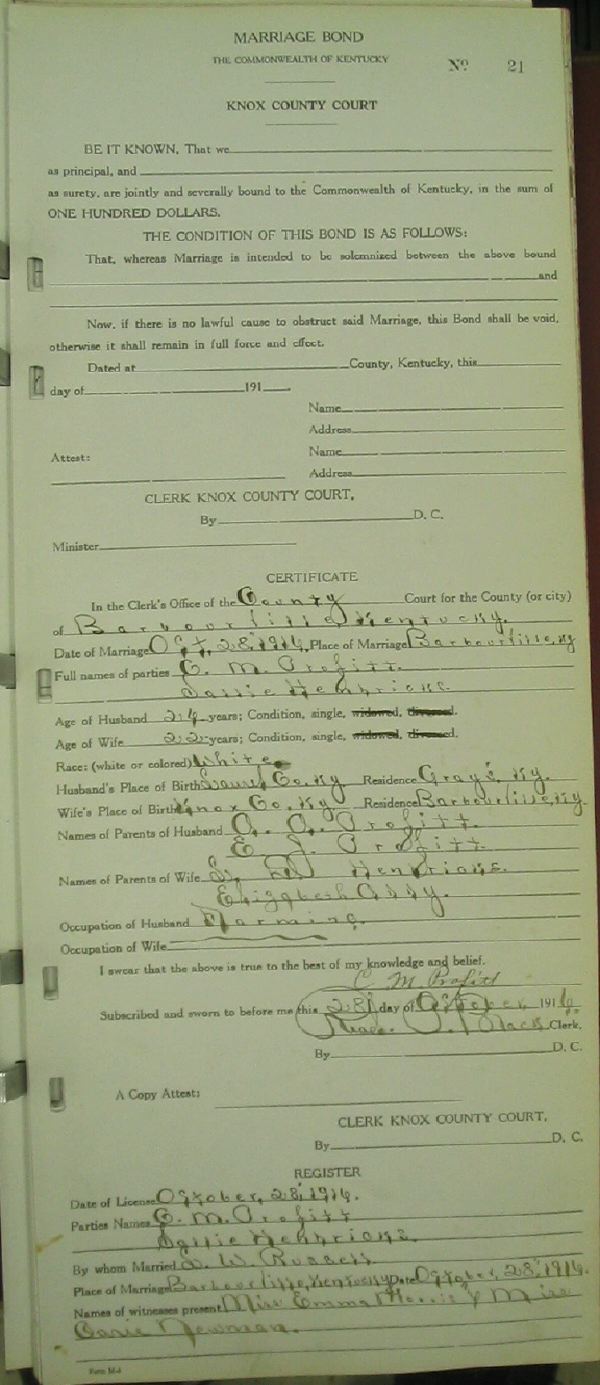 MARRIAGE BOND
THE COMMONWEALTH OF KENTUCKY
No. 21
KNOX COUNTY COURT
BE IT KNOWN, That we
as principal, and
as surety, are jointly and severally bound to the Commonwealth of Kentucky, in the sum of
ONE HUNDRED DOLLARS.
THE CONDITION OF THIS BOND IS AS FOLLOWS:
That, whereas Marriage is intended to be solemnized between the above bound
and
Now, if there is no lawful cause to obstruct said Marriage, this Bond shall be void,
otherwise it shall remain in full force and effect.
Dated at County, Kentucky, this
day of 191
Name
Address
Attest: Name
Address
CLERK KNOX COUNTY COURT,
By D. C.
Minister
CERTIFICATE
In the Clerk's Office of the County Court for the County (or city)
of Barbourville Kentucky.
Date of Marriage Oct, 28, 1916, Place of Marriage Barbourville, Ky
Full names of parties C. M. Profitt.
Sallie Hendricks.
Age of Husband 24 years; Condition, single, widowed, divorced.
Age of Wife 22 years; Condition, single, widowed, divorced.
Race: (white or colored) White
Husband's Place of Birth Laurel Co. Ky Residence Grays, Ky.
Wife's Place of Birth Knox Co. Ky Residence Barbourville, Ky.
Names of Parents of Husband Profitt.
E. J. Profitt.
Names of Parents of Wife Hendricks.
Elizabeth
Occupation of Husband Farming.
Occupation of Wife
I swear that the above is true to the best of my knowledge and belief.
C M Profitt
Subscribed and sworn to before me this 28 day of October, 1916.
Read Black Clerk.
By D. C.
A Copy Attest:
CLERK KNOX COUNTY COURT,
By D. C.
REGISTER
Date of License October, 28, 1916.
Parties Names C. M. Profitt
Sallie Hendricks.
By whom Married W. Russell
Place of Marriage Barbourville, Kentucky Date October, 28, 1916.
Names of witnesses present Miss Emma & Miss
Newman.